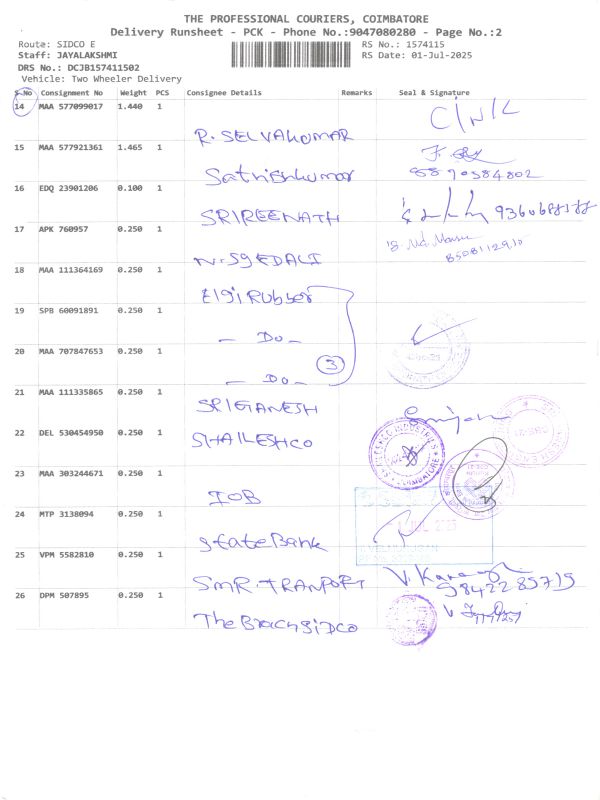 THE PROFESSIONAL COURIERS, COIMBATORE
Delivery Runsheet - PCK - Phone No.:9047080280 - Page No.:2
Route: SIDCO E
RS No.: 1574115
Staff: JAYALAKSHMI
RS Date: 01-Jul-2025
DRS No.: DCJB157411502
Vehicle: Two Wheeler Delivery
S.No Consignment No Weight PCS Consignee Details Remarks Seal & Signature
14 MAA 577099017 1.440 1
R. SELVAKUMAR
15 MAA 577921361 1.465 1
Sathishkumar
8870384802
16 EDQ 23901206 0.100 1
SRIREENATH
17 APK 760957 0.250 1
N. SYEDALI
18 MAA 111364169 0.250 1
Elgi Rubber
19 SPB 60091891 0.250 1
- Do -
20 MAA 707847653 0.250 1
- Do -
3
21 MAA 111335865 0.250 1
SRIGANESH
22 DEL 530454950 0.250 1
SHAILESHCO
23 MAA 303244671 0.250 1
IOB
24 MTP 3138094 0.250 1
State Bank
25 VPM 5582810 0.250 1
SMR. TRANPORT
9842285715
26 DPM 507895 0.250 1
The Brach SIDCO